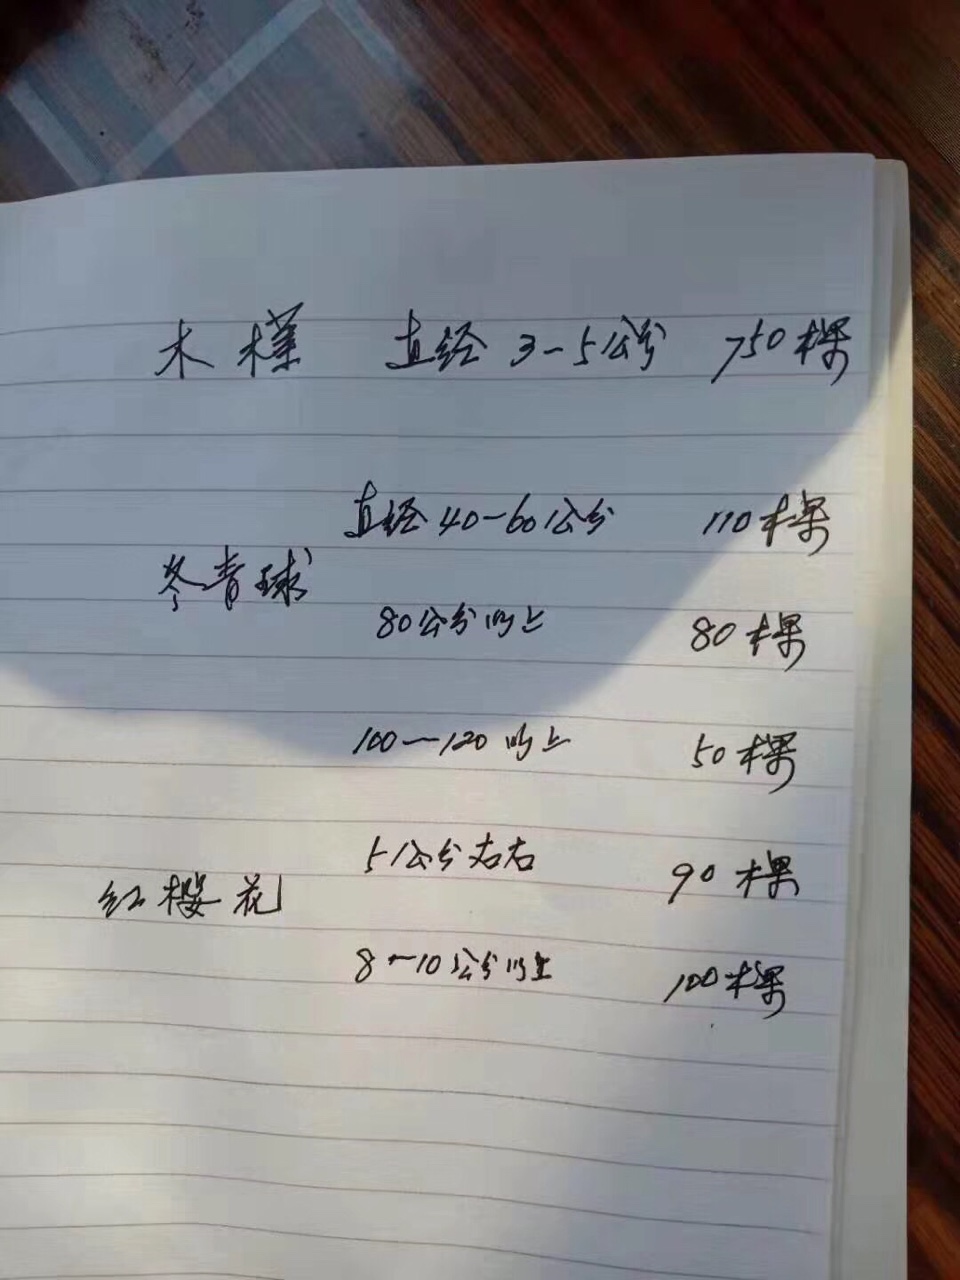 木槿 直径3-5公分 750棵
直径40-60公分 110棵
冬青球
80公分以上 80棵
100-120以上 50棵
5公分左右 90棵
红樱花
8-10公分以上 100棵